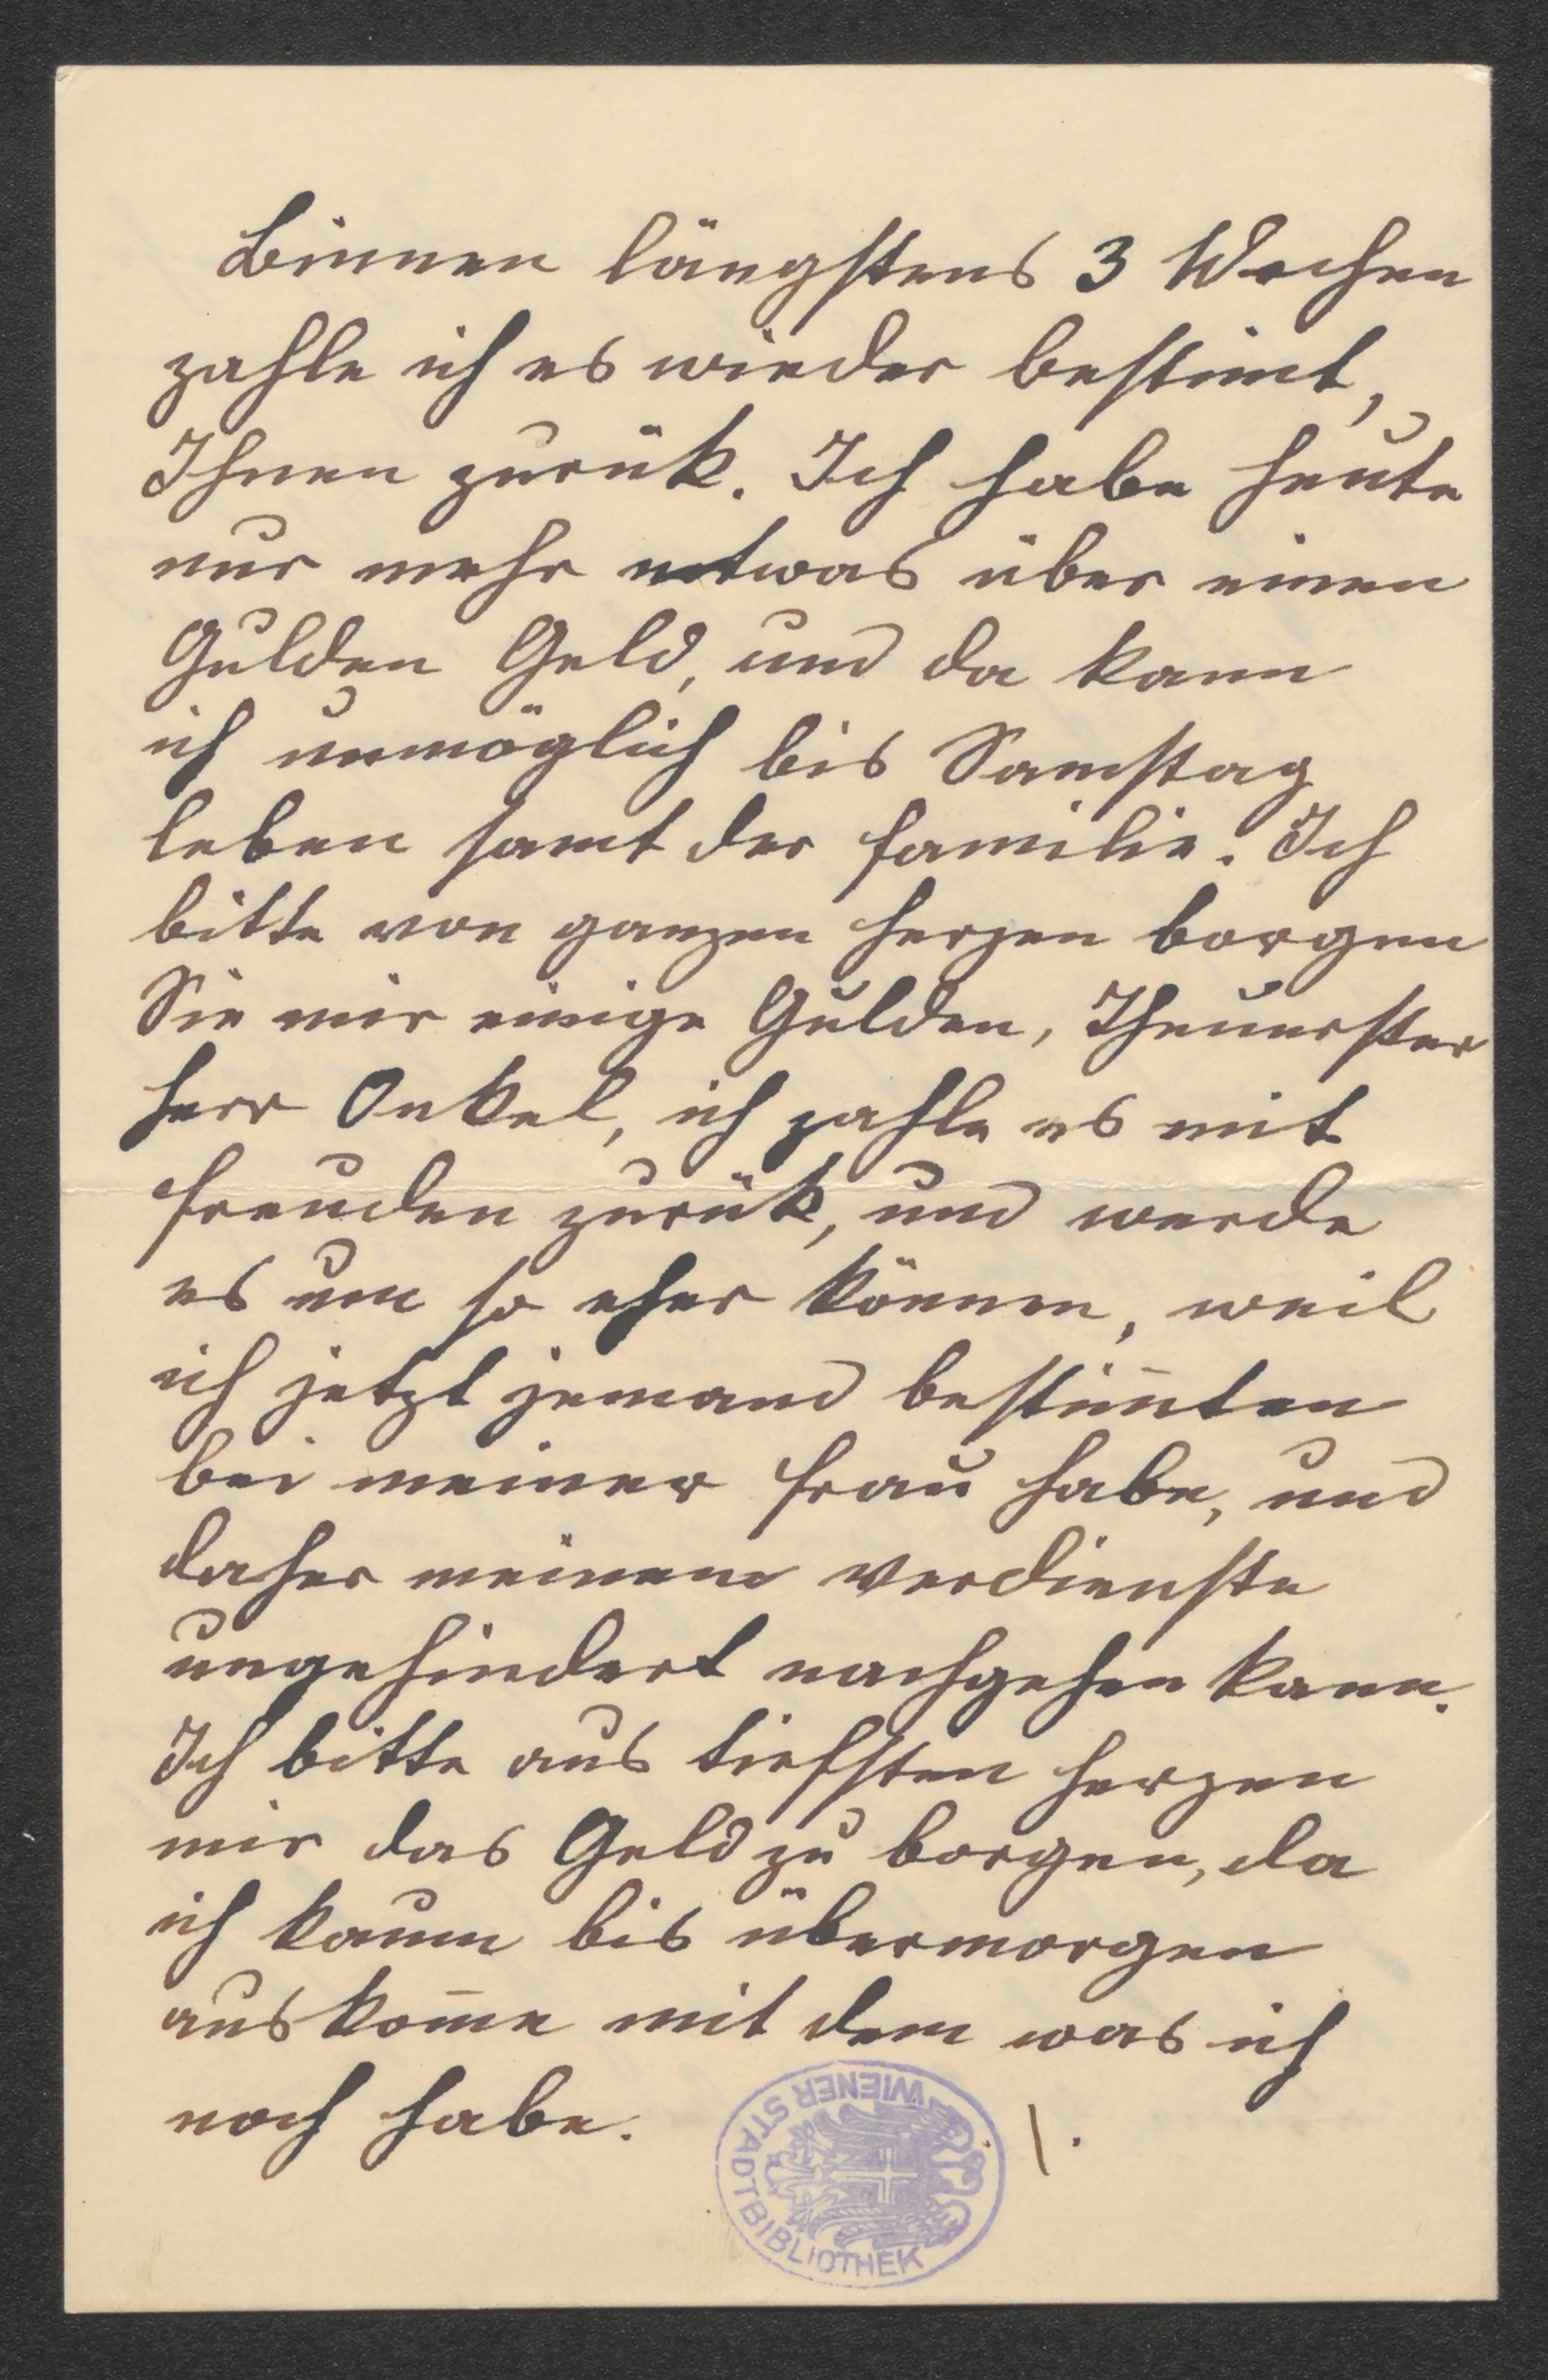 Binnen längstens 3 Wochen
zahle ich es wieder bestimt,
Ihnen zurük. Ich habe heute
nur mehr etwas über einen
Gulden Geld, und da kann
ich unmöglich bis Samstag
leben samt der Familie. Ich
bitte von ganzen Herzen borgen
Sie mir einige Gulden, Theuerster
Herr Onkel, ich zahle es mit
Freuden zurük, und werde
es um so eher können, weil
ich jetzt jemand bestim̄ten
bei meiner Frau habe, und
daher meinem Verdienste
ungehindert nachgehen kann.
Ich bitte aus tiefsten Herzen
mir das Geld zu borgen, da
ich kaum bis übermorgen
auskom̄e mit dem was ich
noch habe. /.
WIENER STADTBIBLIOTHEK